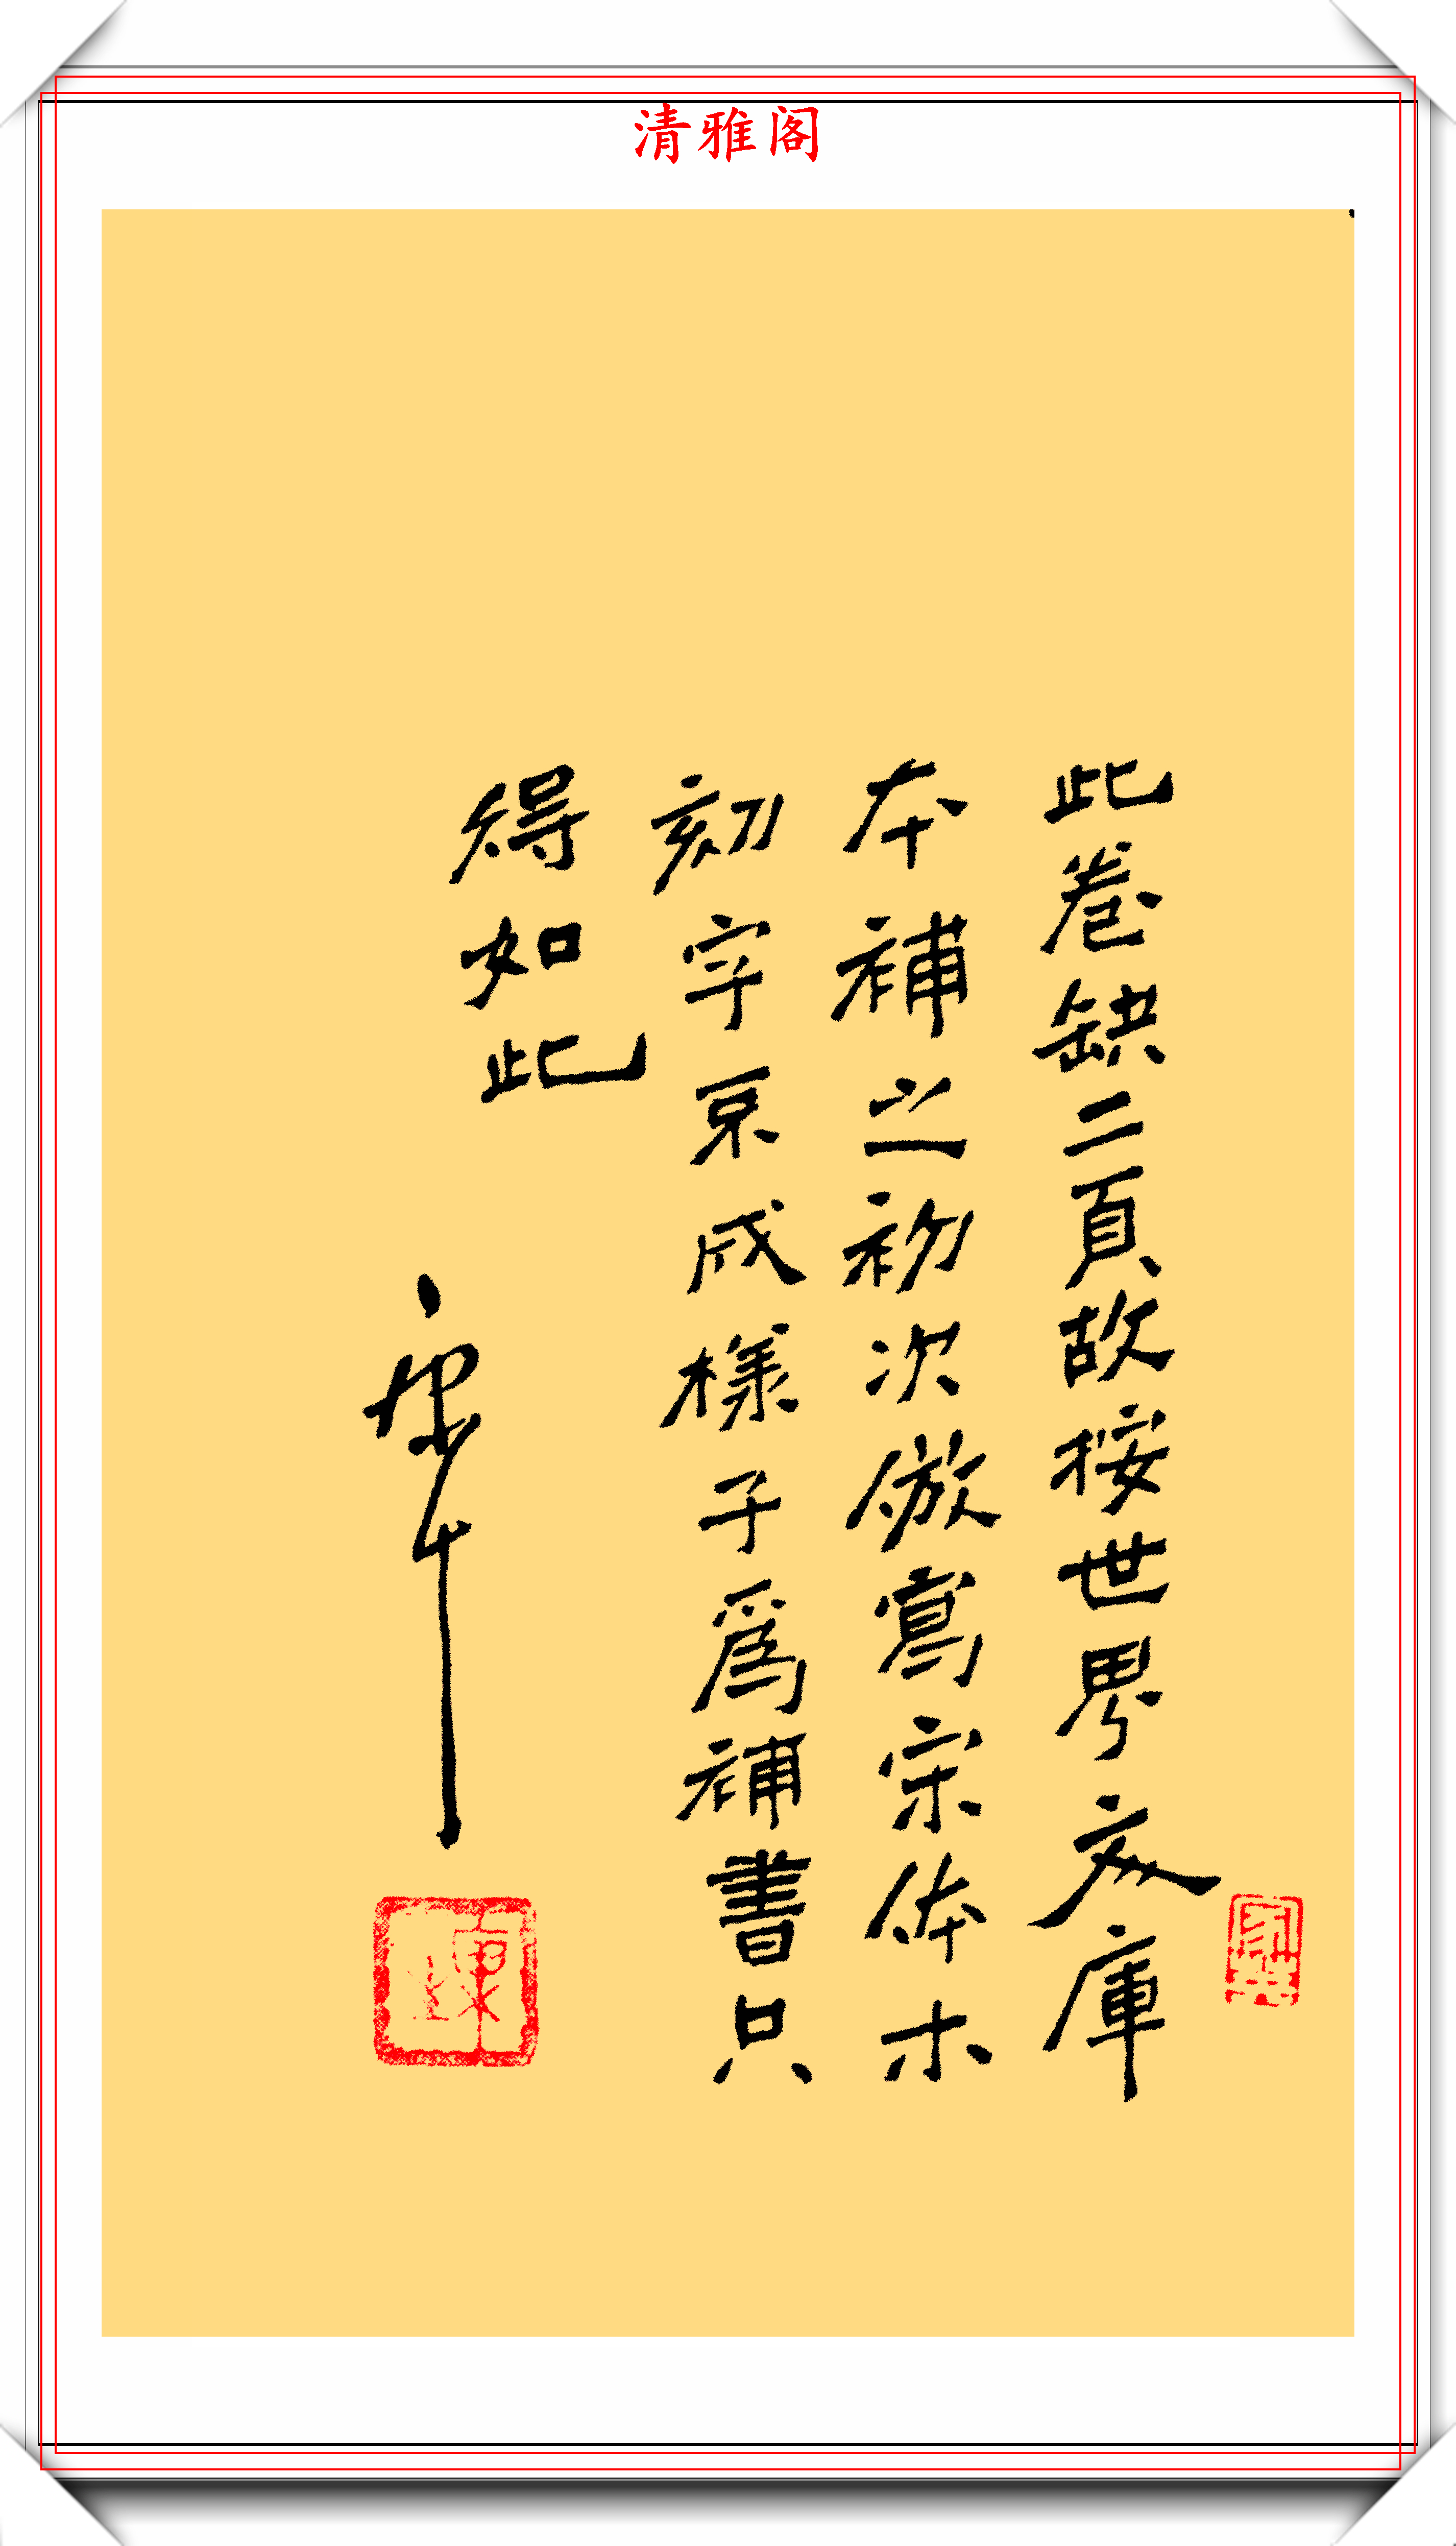 清雅阁
此卷缺二頁故按世界文庫
本補之初次倣寫宋体木
刻字成樣子爲補書只
得如此
康生